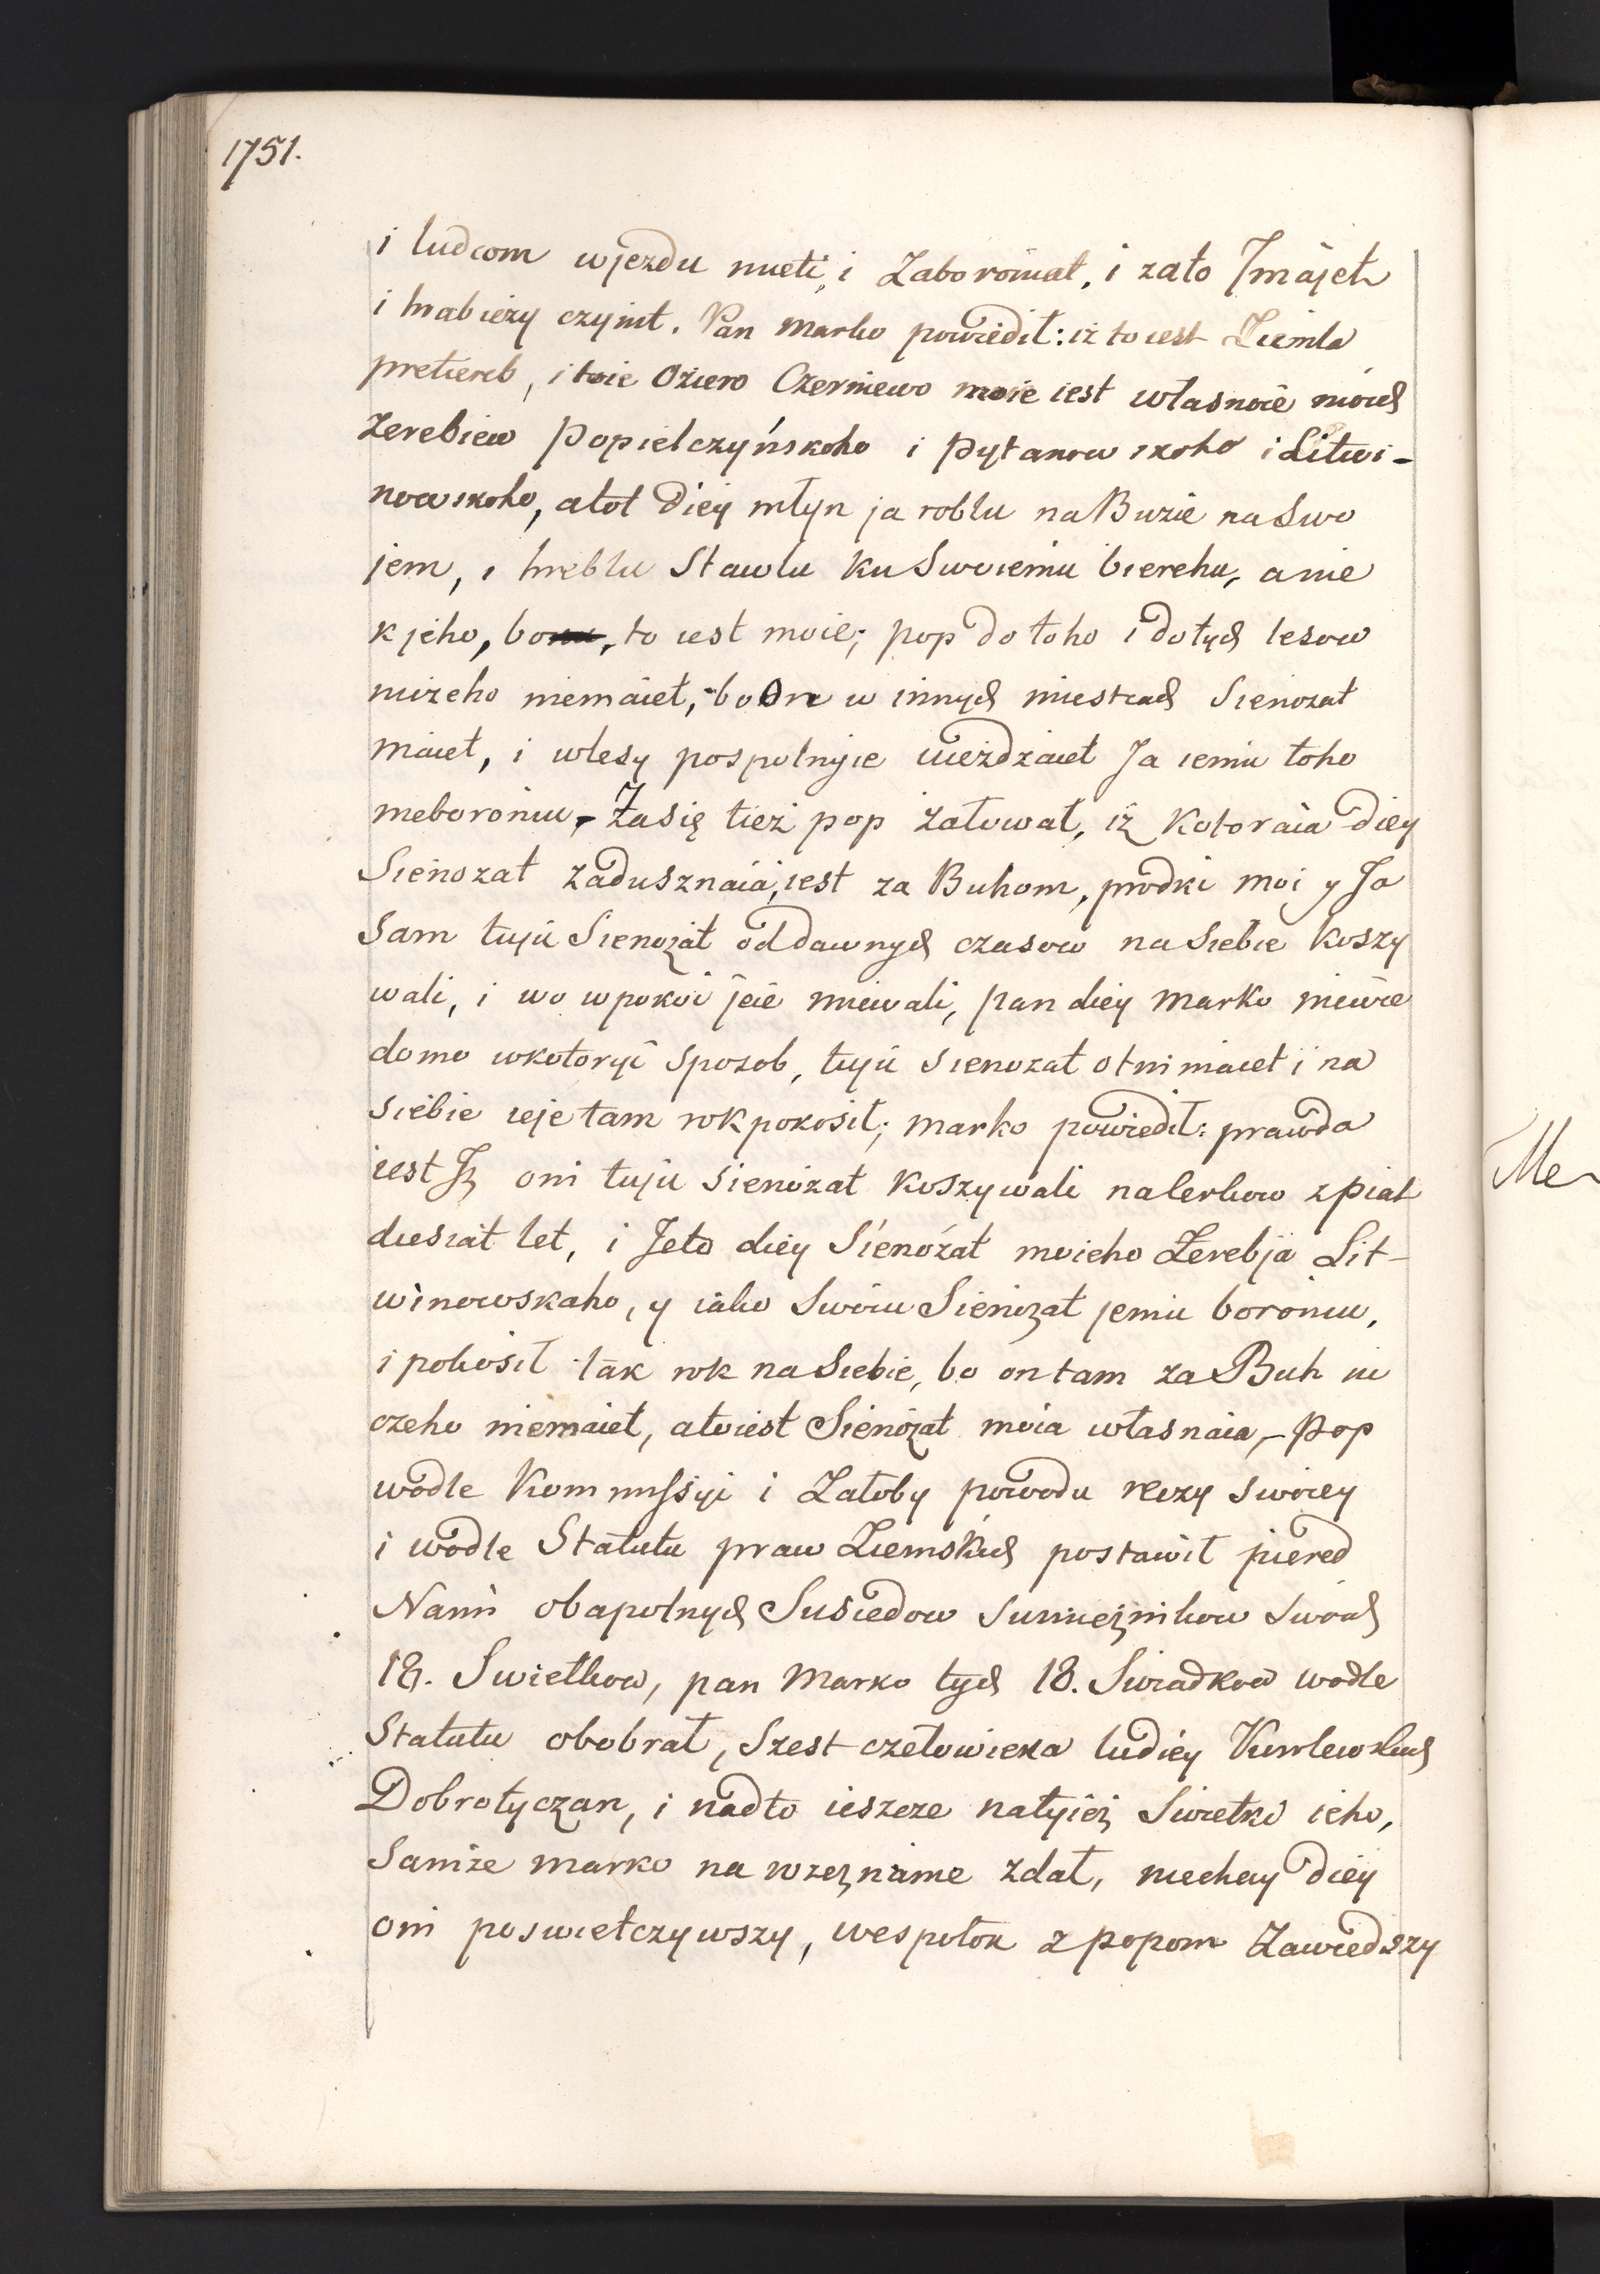 1751.
i ludcom wjezdu mieti, i Zaboroniat, i zato Imajet
i hrabieży czynit. Pan Marko powiedił: iż to iest Ziemla
pretereb, i toie Oziero Czerniewo moie iest własnoie moich
Zerebiew Popielczyńskoho i Pytanowskoho i Litwi-
nowskoho, atot Diey młyn ja roblu na Buzie na Swo
jem, i hreblu Stawlu ku Swoiemu bierehu, a nie
k jeho, bo to iest moie; pop do toho i do tych lesow
niżeho niemaiet, bo On w innych miestcach Sienozat
maiet, i wlesy pospolnyie uieżdżaiet Ja iemu toho
nieboroniu, Zasię tież pop żałował, iż Kotoraia Diey
Sienozat zadusznaia, iest za Buhom, prodki moi y Ja
Sam tuju Sienozat od dawnych czasow na Siebie Koszy
wali, i wo wpokoi jeie miewali, pan diey Marko niewie
domo wkotoryi sposob, tuju sienozat otnimaiet i na
siebie ieje tam rok pokosił; Marko powiedił: prawda
iest Iż oni tuju sienożat Koszywali na Cerkow z piat
diesiat let, i Jeto diey Sienóżat moieho Zerebja Lit-
winowskaho, y iako Swoiu Sienożat jemu boroniu,
i pokosił tak rok na Siebie, bo on tam za Buh ni
czeho niemaiet, ato iest Sienożat moia własnaia, - Pop
wodle Kommissyi i Załoby powodu reczy Swoiey
i wodle Statutu praw Ziemskich postawił piered
Nami obapolnych Susiedow Sumieżnikow Swoich
18. Swietkow, pan Marko tych 18. Swiadkow wodle
Statutu obobrał, Szest czełowieka ludiey Kurolewskich
Dobrotyczan, i nadto ieszcze natyież Swietki ieho,
Samże Marko na wzeznanie zdał, niechay diey
oni poswietczywszy, wespołok z popom Zawiedszy
Me